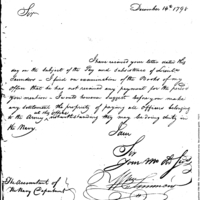 Sir
December 14th 1798
I have received your letter dated this
day on the subject of the Pay and subsistence of Lieut
Saunders - I find on examination of the Books of my
Office that he has not received any payment for the period
you mention - I would however suggest before you make
any settlement the propriety of paying all Officers belonging
at this Office
to the Army, notwithstanding they may be doing duty in
the Navy.
I am
Sir
The Accountant of
The Navy Department
Wm Simmons